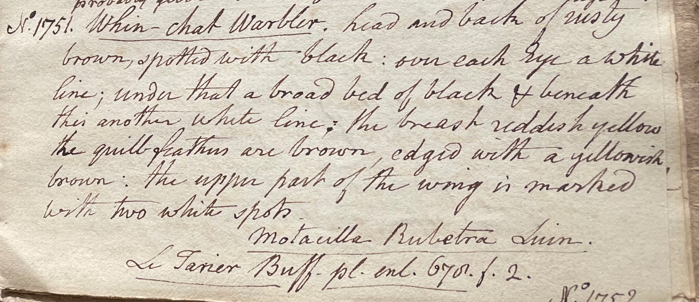 probably
No. 1751. Whin-chat Warbler. head and back of rusty
brown, spotted with black: over each Eye a white
line; under that a broad bed of black & beneath
this another white line; the breast reddish yellow
the quill feathers are brown, edged with a yellowish
brown: the upper part of the wing is marked
with two white spots.
Motacilla Rubetra Linn.
Le Tarier Buff. pl. enl. 678. f. 2.
No. 1752